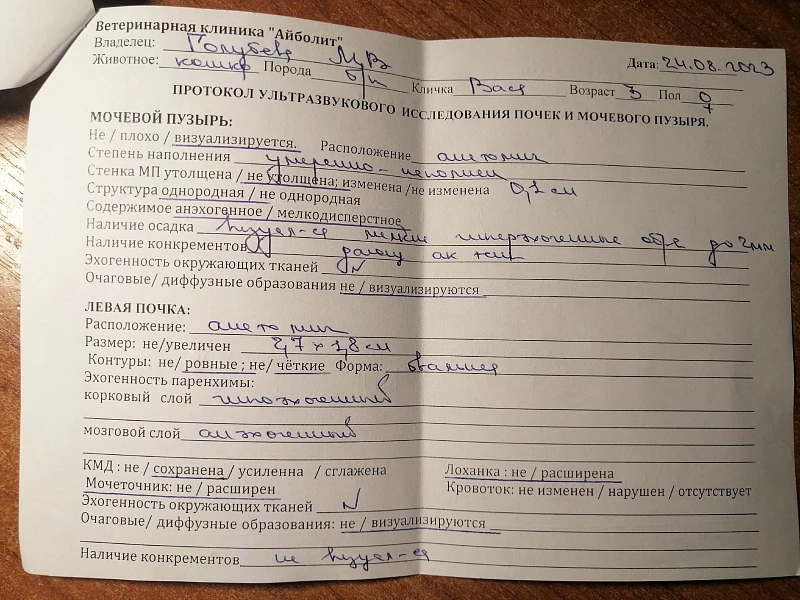 Ветеринарная клиника "Айболит"
Владелец: Голубева Дата: 24.08.2023
Животное: кошка Порода б/п Кличка Вася Возраст 3 Пол ♀
ПРОТОКОЛ УЛЬТРАЗВУКОВОГО ИССЛЕДОВАНИЯ ПОЧЕК И МОЧЕВОГО ПУЗЫРЯ.
МОЧЕВОЙ ПУЗЫРЬ:
Не / плохо / визуализируется. Расположение анатомич
Степень наполнения умеренно-наполнен
Стенка МП утолщена / не утолщена; изменена /не изменена 0,1 см
Структура однородная / не однородная
Содержимое анэхогенное / мелкодисперстное
Наличие осадка визуал-ся мелкие гиперэхогенные обр до 2мм
Наличие конкрементов дающ ак тени
Эхогенность окружающих тканей N
Очаговые/ диффузные образования не / визуализируются
ЛЕВАЯ ПОЧКА:
Расположение: анатомич
Размер: не/увеличен 2,7 х 1,8 см
Контуры: не/ ровные ; не/ чёткие Форма: овальная
Эхогенность паренхимы:
корковый слой гипоэхогенный
мозговой слой анэхогенный
КМД : не / сохранена / усилена / сглажена Лоханка : не / расширена
Мочеточник: не / расширен Кровоток: не изменен / нарушен / отсутствует
Эхогенность окружающих тканей N
Очаговые/ диффузные образования: не / визуализируются
Наличие конкрементов не визуал-ся